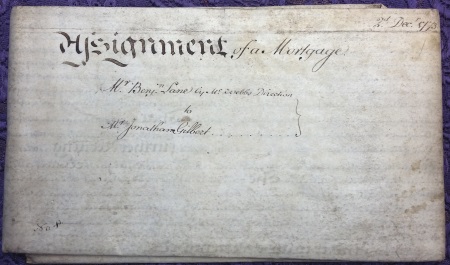 2d. Decr.
Assignment of a Mortgage
Mr. Benjn. Lane by Mr. Webbs Direction
to
Mr. Jonathan Gilbert
No. 8